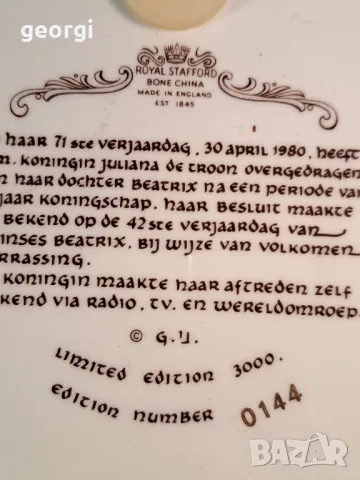 georgi
ROYAL STAFFORD
BONE CHINA
MADE IN ENGLAND
EST 1845
haar 71ste verjaardag, 30 april 1980, heeft
m. koningin juliana de troon overgedragen
n haar dochter Beatrix na een periode van
jaar koningschap. haar besluit maakte
bekend op de 42ste verjaardag van
inses Beatrix, bij wijze van volkomen
rrassing.
koningin maakte haar aftreden zelf
kend via radio, tv. en wereldomroep.
© G.IJ.
Limited edition 3000.
edition number 0144
bazar